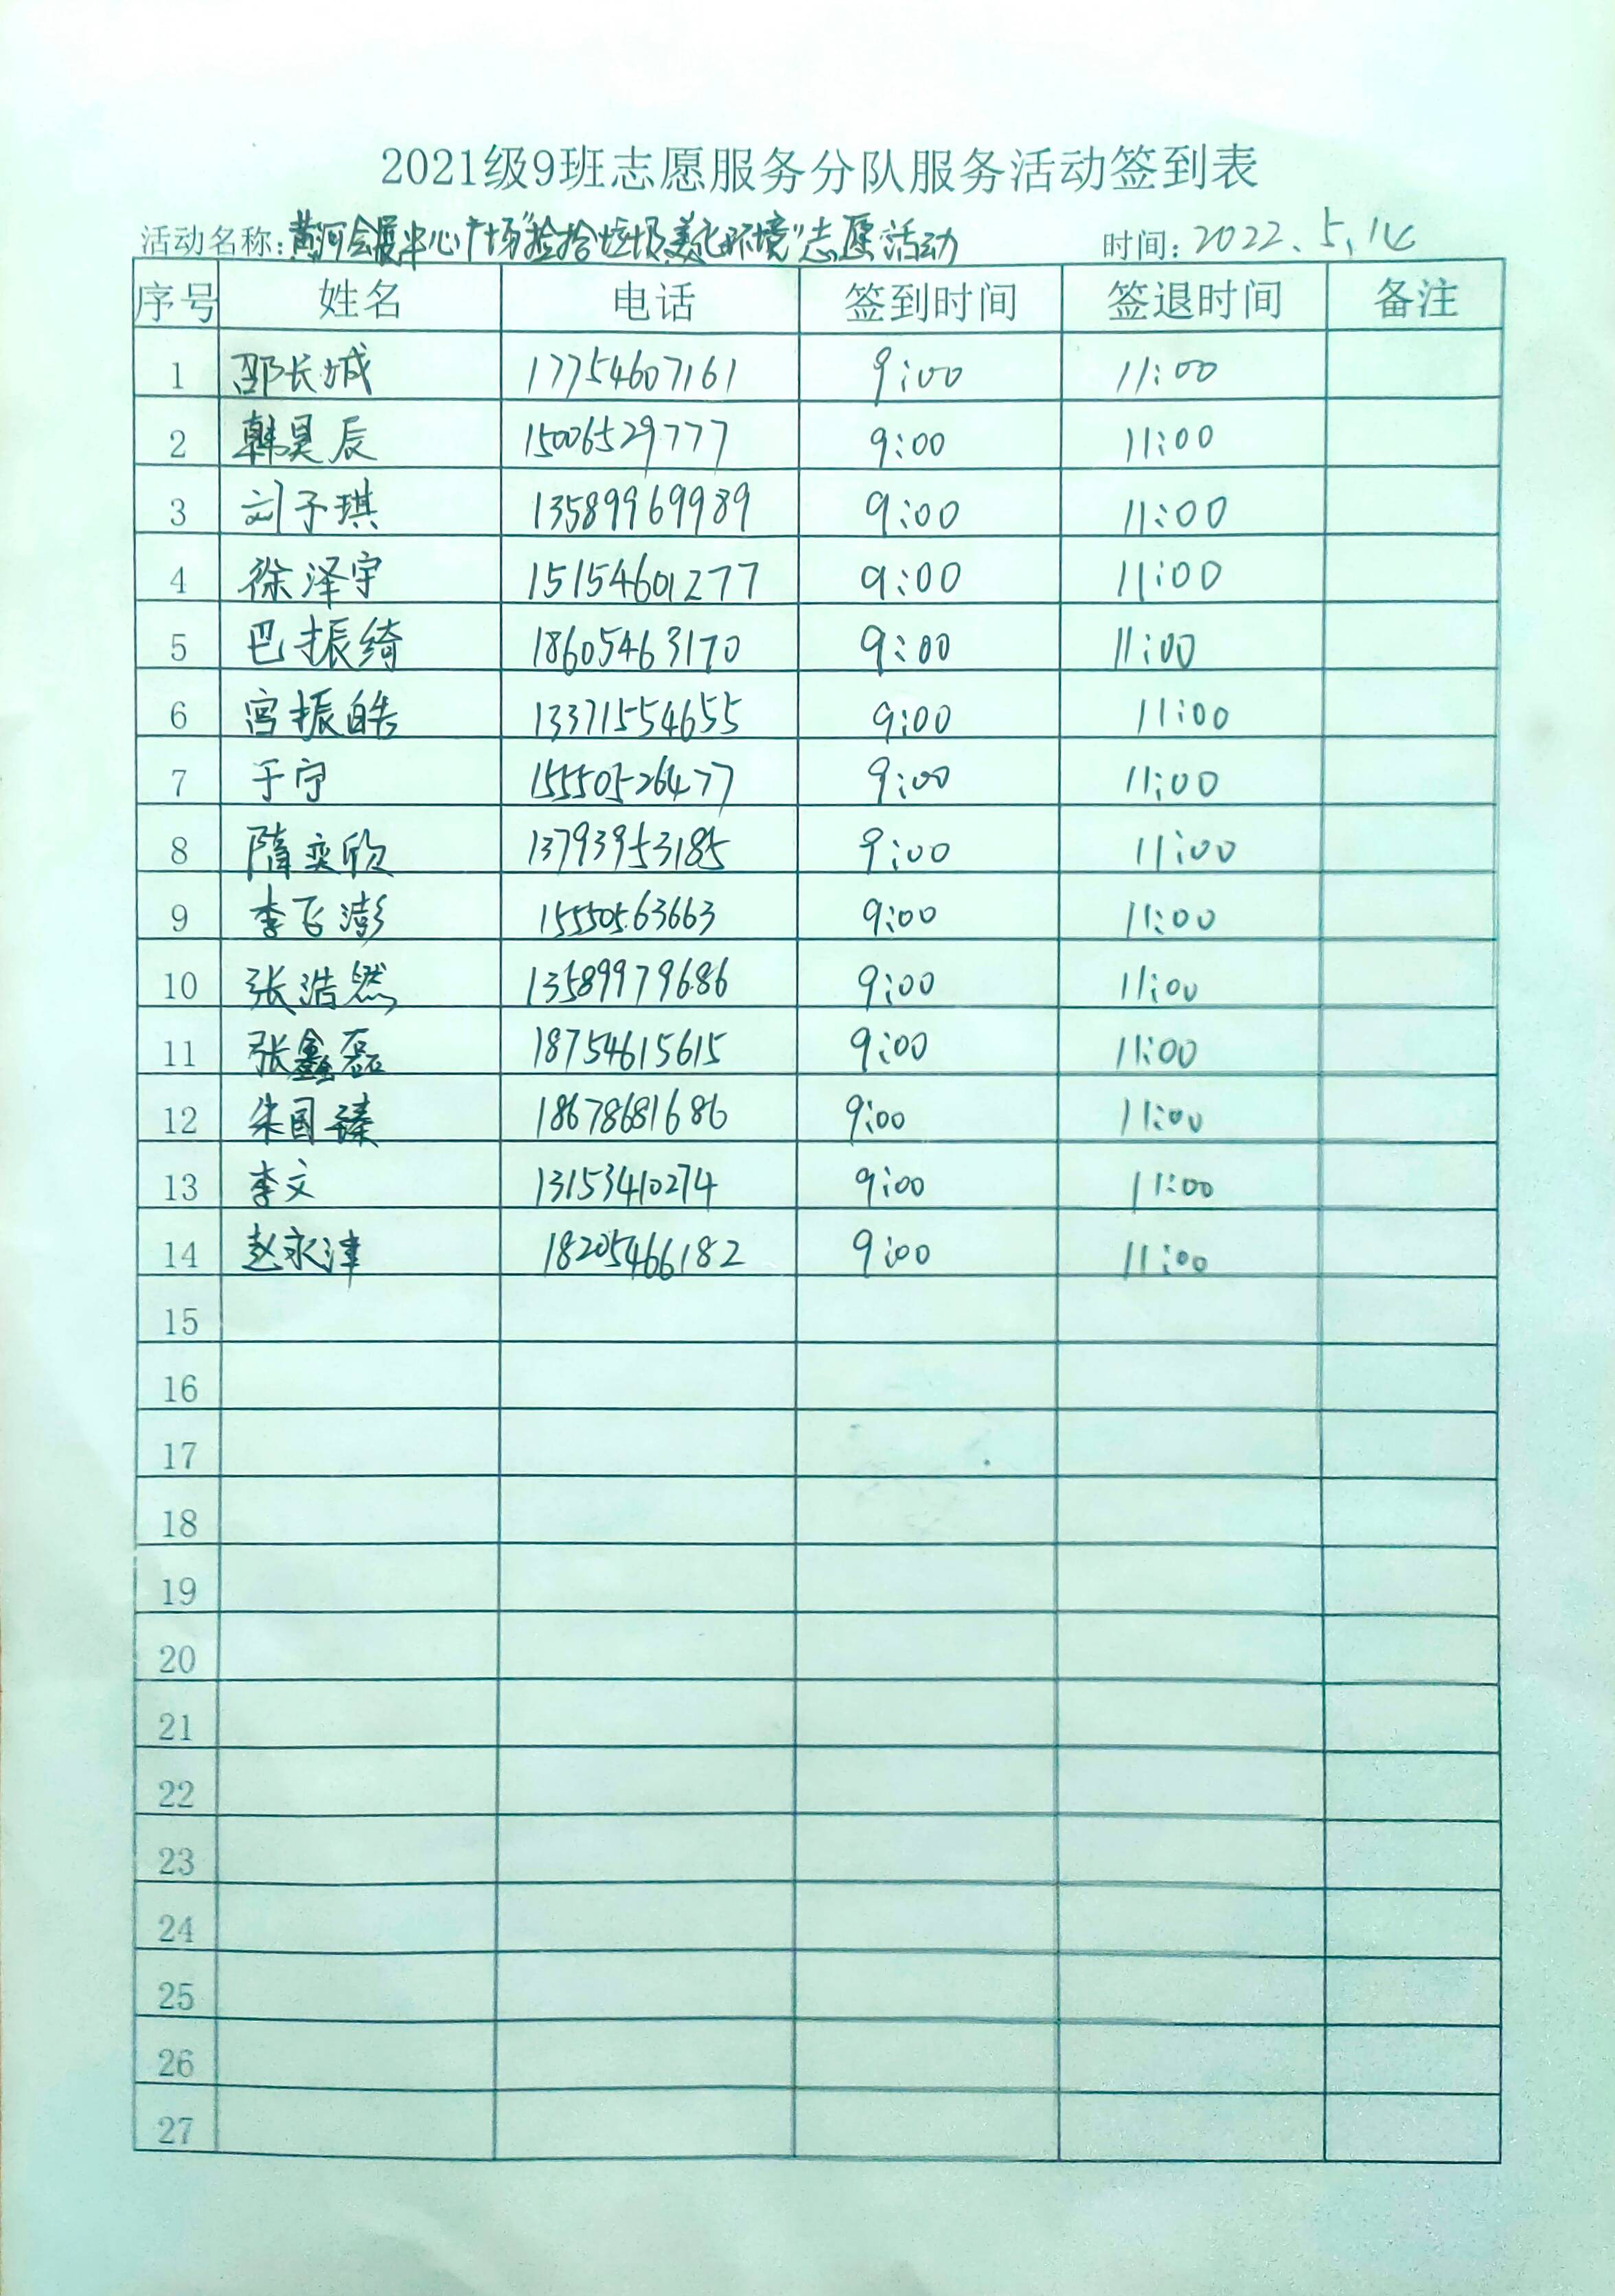 2021级9班志愿服务分队服务活动签到表
活动名称:黄河会展中心广场"捡拾垃圾美化环境"志愿活动 时间:2022.5.14
序号 姓名 电话 签到时间 签退时间 备注
1 邵长城 17754607161 9:00 11:00
2 韩昊辰 15006529777 9:00 11:00
3 刘予琪 13589969989 9:00 11:00
4 徐泽宇 15154601277 9:00 11:00
5 巴振绮 18605463170 9:00 11:00
6 宫振皓 13371554655 9:00 11:00
7 于宁 15550526477 9:00 11:00
8 隋奕欣 13793953185 9:00 11:00
9 李飞澎 15550563663 9:00 11:00
10 张浩然 13589979686 9:00 11:00
11 张鑫磊 18754615615 9:00 11:00
12 朱国臻 18678681686 9:00 11:00
13 李文 13153410274 9:00 11:00
14 赵永津 18205466182 9:00 11:00
15
16
17
18
19
20
21
22
23
24
25
26
27